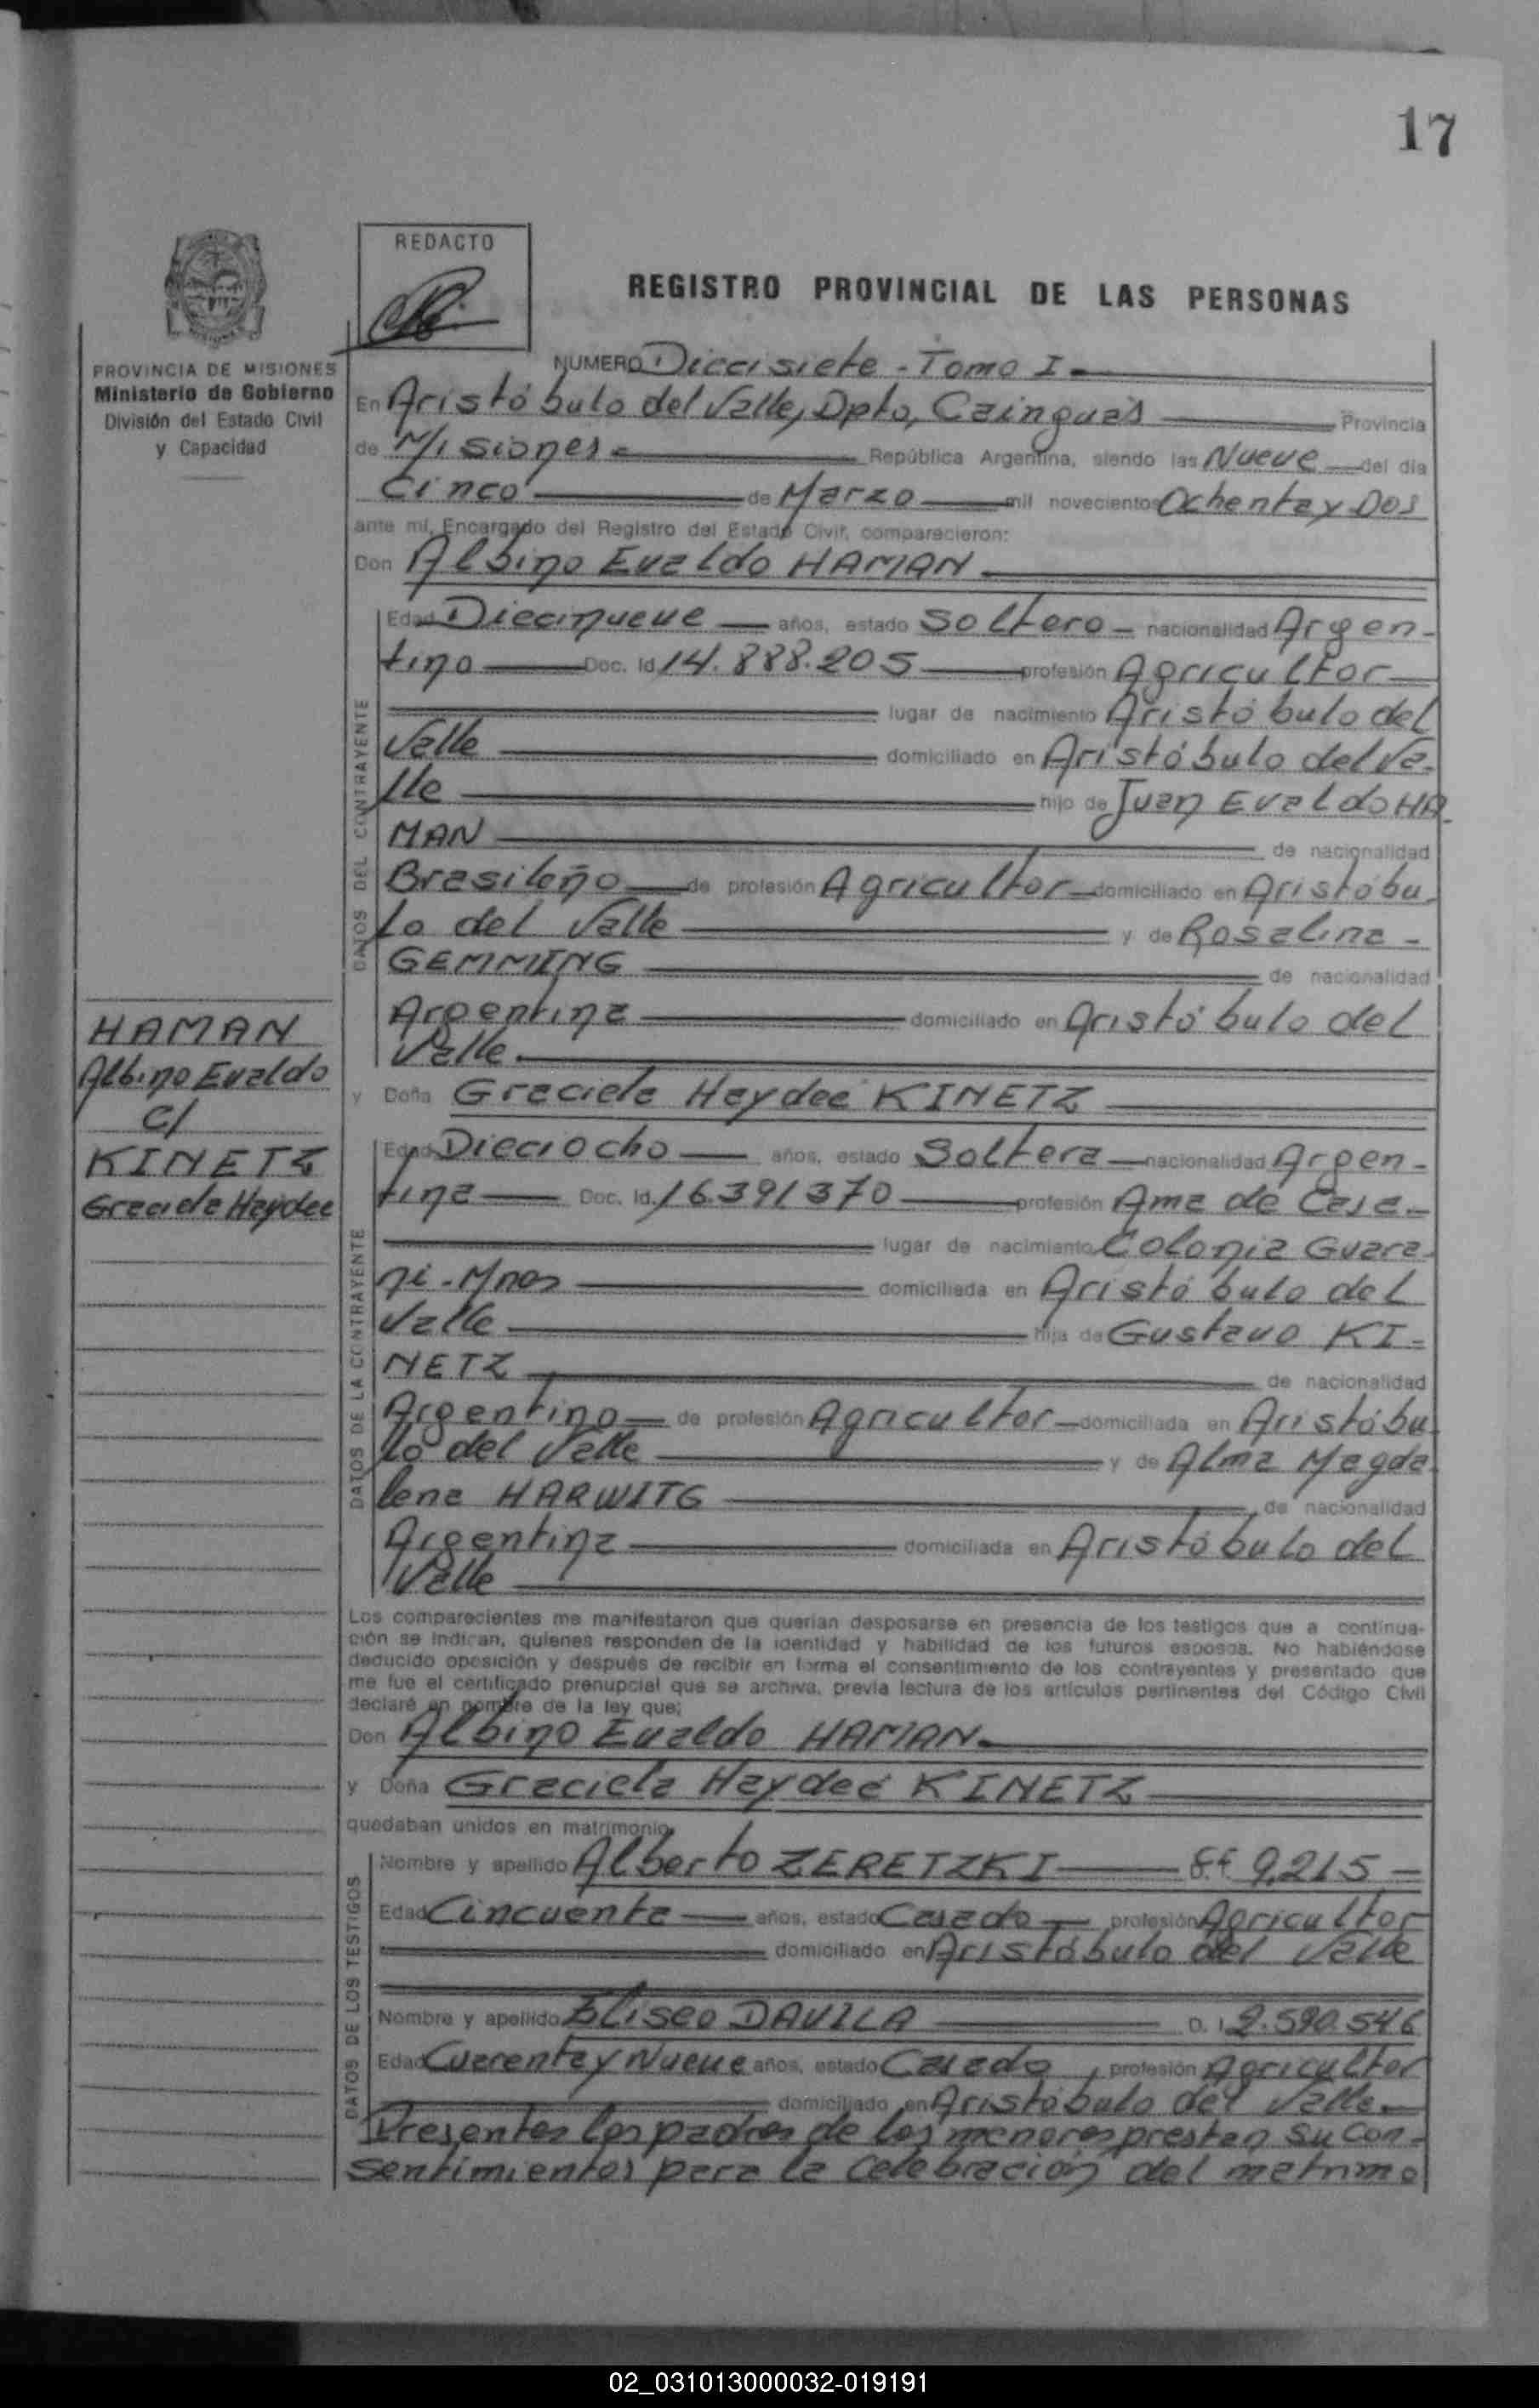 17
REDACTO
REGISTRO PROVINCIAL DE LAS PERSONAS
PROVINCIA DE MISIONES
Ministerio de Gobierno
División del Estado Civil
y Capacidad
NUMERO Diecisiete - Tomo I
En Aristóbulo del Valle, Dpto, Cainguás Provincia
de Misiones República Argentina, siendo las Nueve del día
Cinco de Marzo mil novecientos Ochenta y Dos
ante mí, Encargado del Registro del Estado Civil, comparecieron:
Don Albino Evaldo HAMAN
DATOS DEL CONTRAYENTE
Edad Diecinueve años, estado Soltero nacionalidad Argen-
tino Doc. Id. 14.888.205 profesión Agricultor
lugar de nacimiento Aristóbulo del
Valle domiciliado en Aristóbulo del Va-
lle hijo de Juan Evaldo HA-
MAN de nacionalidad
Brasileño de profesión Agricultor domiciliado en Aristóbu-
lo del Valle y de Rosalina
GEMMING de nacionalidad
Argentina domiciliado en Aristóbulo del
Valle
HAMAN
Albino Evaldo
c/
KINETZ
Graciela Haydee
y Doña Graciela Haydeé KINETZ
DATOS DE LA CONTRAYENTE
Edad Dieciocho años, estado Soltera nacionalidad Argen-
tina Doc. Id. 16.391370 profesión Ama de Casa
lugar de nacimiento Colonia Guara-
ni - Mnes domiciliada en Aristóbulo del
Valle hija de Gustavo KI-
NETZ de nacionalidad
Argentino de profesión Agricultor domiciliada en Aristóbu-
lo del Valle y de Alma Magda-
lena HARWITG de nacionalidad
Argentina domiciliada en Aristóbulo del
Valle
Los comparecientes me manifestaron que querían desposarse en presencia de los testigos que a continua-
ción se indican, quienes responden de la identidad y habilidad de los futuros esposos. No habiéndose
deducido oposición y después de recibir en forma el consentimiento de los contrayentes y presentado que
me fue el certificado prenupcial que se archiva, previa lectura de los artículos pertinentes del Código Civil
declaré en nombre de la ley que;
Don Albino Evaldo HAMAN
y Doña Graciela Haydeé KINETZ
quedaban unidos en matrimonio
DATOS DE LOS TESTIGOS
Nombre y apellido Alberto ZERETZKI 9,215
Edad Cincuenta años, estado Casado profesión Agricultor
domiciliado en Aristóbulo del Valle
Nombre y apellido Eliseo DAVILA D. I 2.590.546
Edad Cuarenta y Nueve años, estado Casado, profesión Agricultor
domiciliado en Aristóbulo del Valle
Presentes los padres de los menores prestan su con-
sentimientos para la celebración del matrimo
02_031013000032-019191